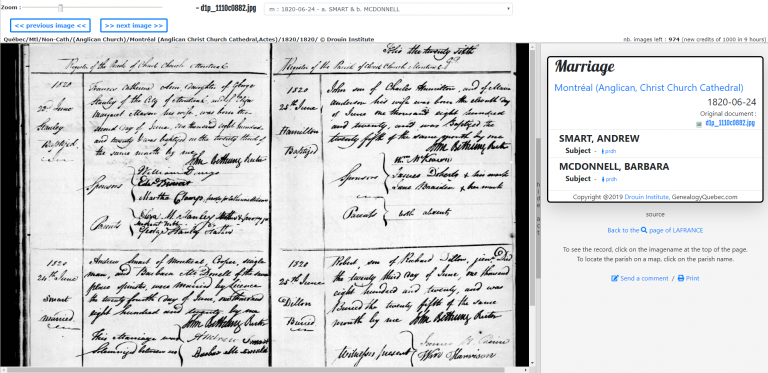 Zoom :
d1p_1110c0882.jpg
m : 1820-06-24 - a. SMART & b. MCDONELL
<< previous image <<
>> next image >>
Québec/Mtl/Non-Cath/(Anglican Church)/Montréal (Anglican Christ Church Cathedral,Actes)/1820/1820/ © Drouin Institute
nb. images left : 974 (new credits of 1000 in 9 hours)
Register of the Parish of Christ Church Montreal
1820
Stanley
Baptized
daughter of George
Stanley of the City of Montreal, and of Eliza
Margaret his wife, was born the
second day of June, one thousand eight hundred
and twenty
the same month by me
John Bethune Rector
Sponsors
Parents
George Stanley Father
1820
24th June
Smart
Married
Andrew Smart of Montreal, Cooper, single
man, and Barbara McDonell of the same
place spinster, were married by licence
the twenty fourth day of June, one thousand
eight hundred and twenty by me
John Bethune Rector
This Marriage was
Solemnized between us
Andrew Smart
Barbara McDonald
this the twenty sixth
Register of the Parish of Christ Church Montreal
1820
25th June
Hamilton
Baptized
John son of Charles Hamilton, and of
Anderson his wife was born the eleventh day
of June one thousand eight hundred
and twenty, and was Baptized the
twenty fifth of the same month by me
John Bethune Rector
Sponsors
James Doherty + his mark
Jane + her mark
Parents
both absent
1820
25th June
Dillon
Buried
Robert, son of Richard Dillon, junr. Died
the twenty third day of June, one thousand
eight hundred and twenty, and was
Buried the twenty fifth of the same
month by me John Bethune Rector
Witnesses present
Marriage
Montréal (Anglican, Christ Church Cathedral)
1820-06-24
Original document :
d1p_1110c0882.jpg
SMART, ANDREW
Subject - prdh
MCDONNELL, BARBARA
Subject - prdh
Copyright @2019 Drouin Institute, GenealogyQuebec.com
source
Back to the page of LAFRANCE
To see the record, click on the imagename at the top of the page.
To locate the parish on a map, click on the parish name.
Send a comment / Print